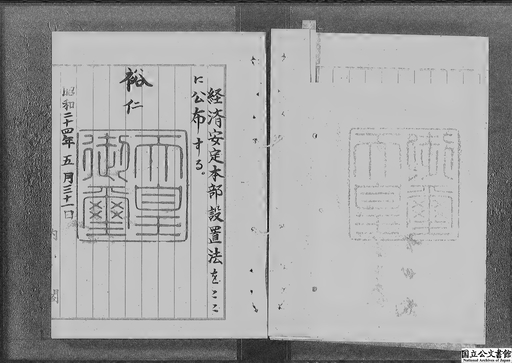 経済安定本部設置法をここ
に公布する。
裕仁
天皇
御璽
昭和二十四年五月三十一日
内閣
国立公文書館
National Archives of Japan